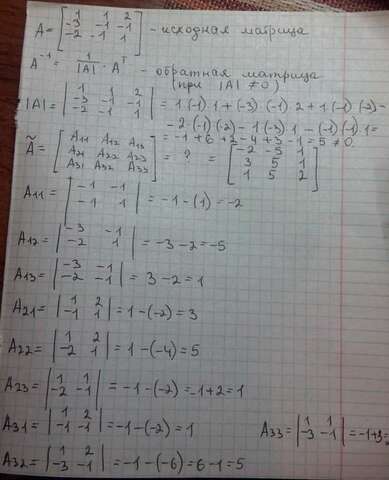 A = [1 1 2; -3 -1 -1; -2 -1 1] - исходная матрица
A⁻¹ = 1/|A| · Ãᵀ - обратная матрица
(при |A| ≠ 0)
|A| = |1 1 2; -3 -1 -1; -2 -1 1| = 1·(-1)·1 + (-3)·(-1)·2 + 1·(-1)·(-2) -
- 2·(-1)·(-2) - 1·(-3)·1 - (-1)·(-1)·1 =
= -1 + 6 + 2 - 4 + 3 - 1 = 5 ≠ 0.
Ã = [A11 A12 A13; A21 A22 A23; A31 A32 A33] = ? = [-2 -5 1; 3 5 1; 1 5 2]
A11 = |-1 -1; -1 1| = -1 - (1) = -2
A12 = |-3 -1; -2 1| = -3 - 2 = -5
A13 = |-3 -1; -2 -1| = 3 - 2 = 1
A21 = |1 2; -1 1| = 1 - (-2) = 3
A22 = |1 2; -2 1| = 1 - (-4) = 5
A23 = |1 1; -2 -1| = -1 - (-2) = -1 + 2 = 1
A31 = |1 2; -1 -1| = -1 - (-2) = 1
A33 = |1 1; -3 -1| = -1 + 3 =
A32 = |1 2; -3 -1| = -1 - (-6) = 6 - 1 = 5